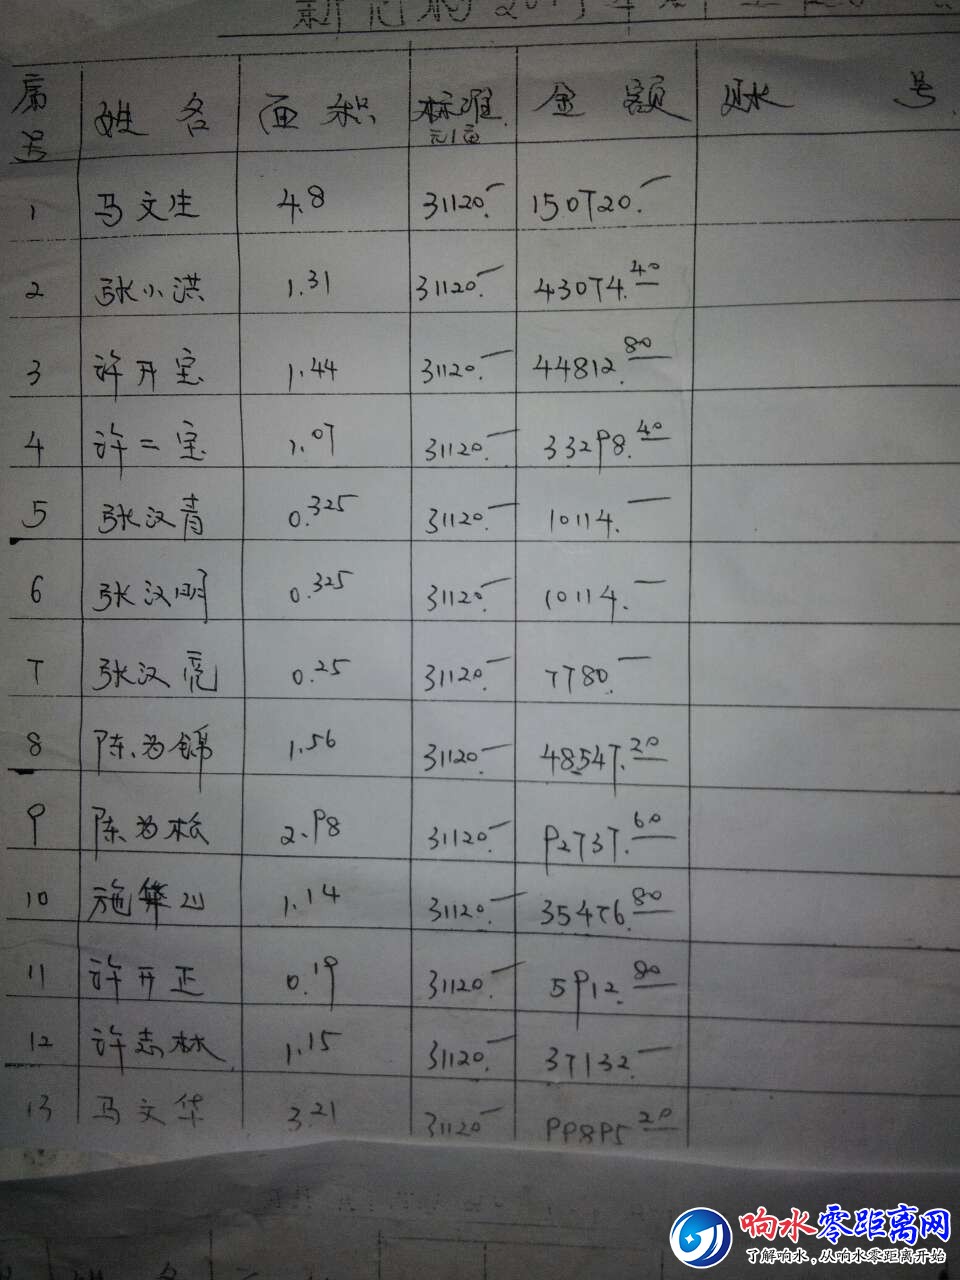 序号 姓名 面积 标准元/亩 金额 账号
1 马文生 4.8 31120.— 150720.—
2 张小洪 1.31 31120.— 43074.40
3 许开宝 1.44 31120.— 44812.80
4 许二宝 1.07 31120.— 33298.40
5 张汉青 0.325 31120.— 10114.—
6 张汉明 0.325 31120.— 10114.—
7 张汉亮 0.25 31120.— 7780.—
8 陈为锦 1.56 31120.— 48547.20
9 陈为松 2.98 31120.— 92737.60
10 施华山 1.14 31120.— 35476.80
11 许开正 0.19 31120.— 5912.80
12 许志林 1.15 31120.— 37132.—
13 马文华 3.21 31120— 99895.20
响水零距离网
了解响水,从响水零距离开始